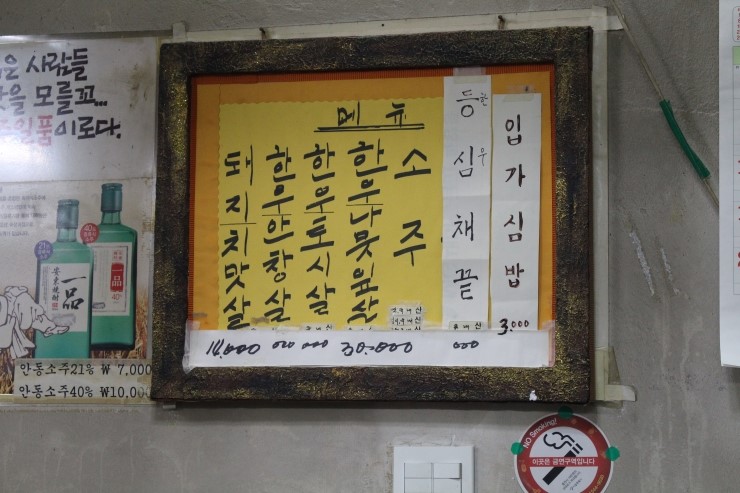 은 사람들
맛을 모를꼬...
일품이로다.
一品
安東燒酎
一品
안동소주21% ₩ 7,000
안동소주40% ₩10,000
메뉴
돼지치맛살
한우안창살
한우토시살
한우나뭇잎살
소주
한우
등심채끝
입가심밥
3.000
14,000
000
000
30.000
000
국내산
NO Smoking!
이곳은 금연구역입니다